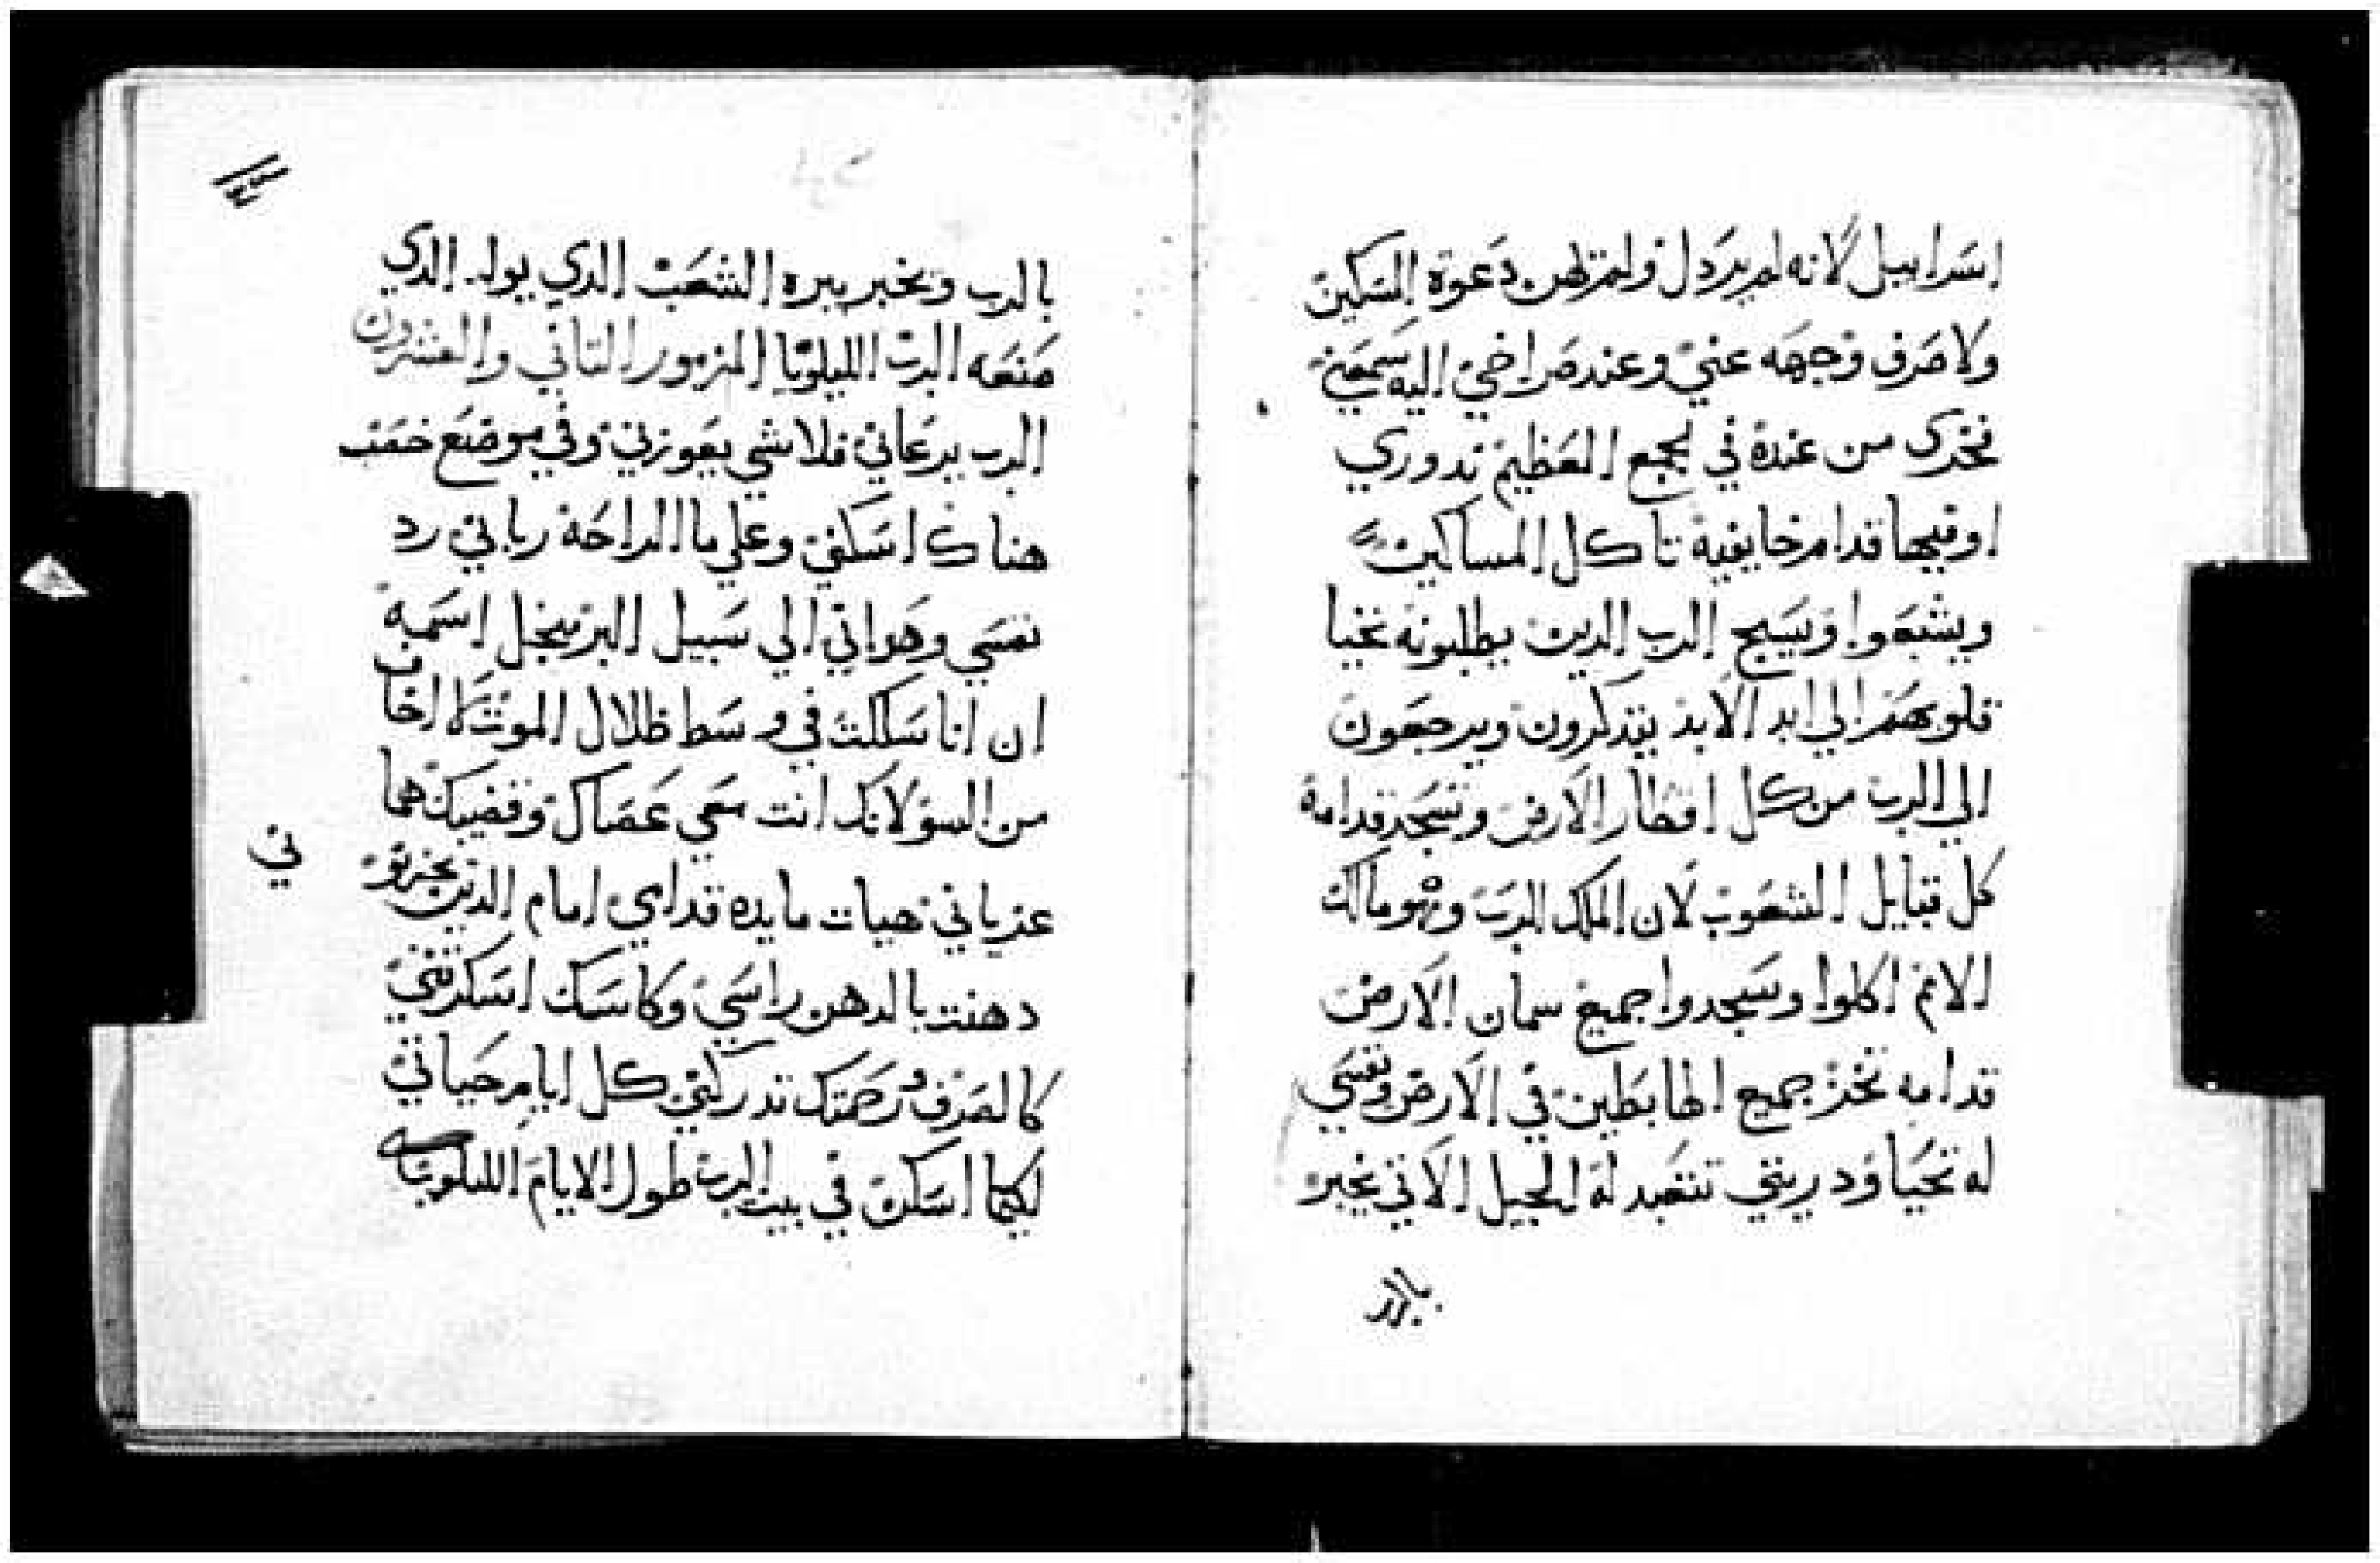 اسراييل لانه لم يردل ولم تهن دعوة المسكين
ولا صرف وجهه عني وعند صراخي اليه سمعني
فخرى من عنده في لجمع العظيم ندوري
اوفيها قدام خايفيه تاكل المساكين
ويشبعوا ويسبح الرب الدين يطلبونه تحيا
قلوبهم الي ابد الابد يتدكرون ويرجعون
الي الرب من كل اقطار الارض وتسجد قدامه
كل قبايل الشعوب لان الملك للرب وهو مالك
الامم اكلوا وسجدوا جميع سمان الارض
قدامه تخر جميع الهابطين في الارض ونفسي
له تحيا ودريتي تتعبد له الجيل الاتي يخبر
بالر
بالرب وتخبر ببره الشعب الدي يولد الدي
صنعه الرب الليلويا المزمور التاني والعشرون
الرب يرعاني فلا شي يعوزني وفي موضع خصب
هناك اسكني وعلي ما الراحة رباني رد
نفسي وهداني الي سبيل البر منجل اسمه
ان انا سلكت في وسط ظلال الموت لا اخاف
من السو لانك انت معي عصاك وقضيبك هما
عزياني هيات مايده قدامي امام الدين يحزنو
ني
دهنت بالدهن راسي وكاسك اسكرتني
كالصرف ورحمتك تدركني كل ايام حياتي
لكيما اسكن في بيت الرب طول الايام الليلويا